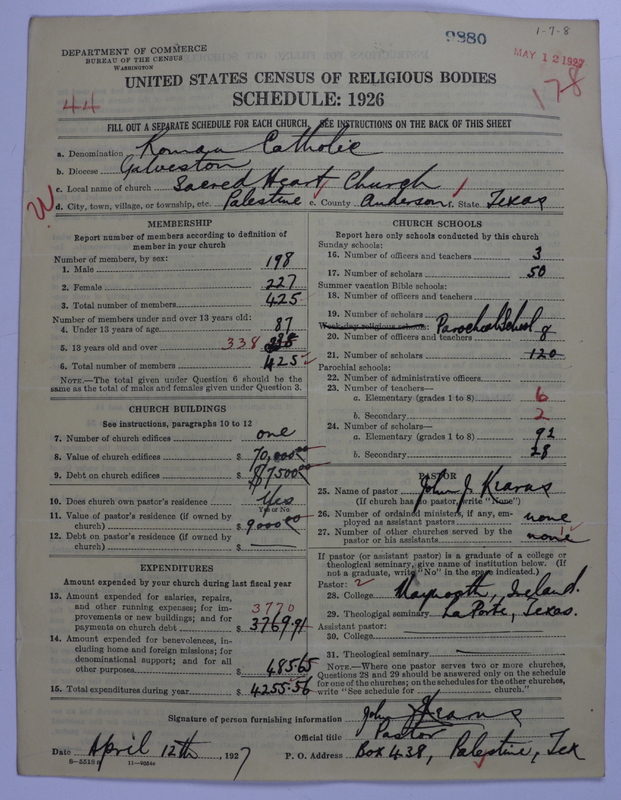 1-7-8
9880
DEPARTMENT OF COMMERCE
BUREAU OF THE CENSUS
WASHINGTON
MAY 12 1927
178
UNITED STATES CENSUS OF RELIGIOUS BODIES
44
SCHEDULE: 1926
FILL OUT A SEPARATE SCHEDULE FOR EACH CHURCH. SEE INSTRUCTIONS ON THE BACK OF THIS SHEET
a. Denomination Roman Catholic
b. Diocese Galveston
c. Local name of church Sacred Heart Church
W
d. City, town, village, or township, etc. Palestine e. County Anderson f. State Texas
MEMBERSHIP
Report number of members according to definition of
member in your church
Number of members, by sex:
1. Male 198
2. Female 227
3. Total number of members 425
Number of members under and over 13 years old:
4. Under 13 years of age 87
5. 13 years old and over 338
6. Total number of members 425
NOTE.—The total given under Question 6 should be
same as the total of males and females given under Question 3.
CHURCH BUILDINGS
See instructions, paragraphs 10 to 12
7. Number of church edifices one
8. Value of church edifices $ 70,000 00
9. Debt on church edifices $ 7500 00
10. Does church own pastor's residence Yes
Yes or No
11. Value of pastor's residence (if owned by
church) $ 9000 00
12. Debt on pastor's residence (if owned by
church) $ —
EXPENDITURES
Amount expended by your church during last fiscal year
13. Amount expended for salaries, repairs,
and other running expenses; for im-
provements or new buildings; and for
payments on church debt $ 3769.91
3770
14. Amount expended for benevolences, in-
cluding home and foreign missions; for
denominational support; and for all
other purposes $ 485.65
15. Total expenditures during year $ 4255.56
CHURCH SCHOOLS
Report here only schools conducted by this church
Sunday schools:
16. Number of officers and teachers 3
17. Number of scholars 50
Summer vacation Bible schools:
18. Number of officers and teachers
19. Number of scholars
Week-day religious schools: Parochial School
20. Number of officers and teachers 8
21. Number of scholars 120
Parochial schools:
22. Number of administrative officers
23. Number of teachers—
a. Elementary (grades 1 to 8) 6
b. Secondary 2
24. Number of scholars—
a. Elementary (grades 1 to 8) 92
b. Secondary 28
PASTOR
25. Name of pastor John J. Kearns
(If church has no pastor, write "None")
26. Number of ordained ministers, if any, em-
ployed as assistant pastors none
27. Number of other churches served by the
pastor or his assistants none
If pastor (or assistant pastor) is a graduate of a college or
theological seminary, give name of institution below. (If
not a graduate, write "No" in the space indicated.)
Pastor: 2
28. College Maynooth, Ireland.
29. Theological seminary La Porte, Texas.
Assistant pastor:
30. College
31. Theological seminary
NOTE.—Where one pastor serves two or more churches,
Questions 28 and 29 should be answered only on the schedule
for one of the churches; on the schedules for the other churches,
write "See schedule for church."
Signature of person furnishing information John J Kearns
Official title Pastor
Date April 12th, 1927 P. O. Address Box 438, Palestine, Tex